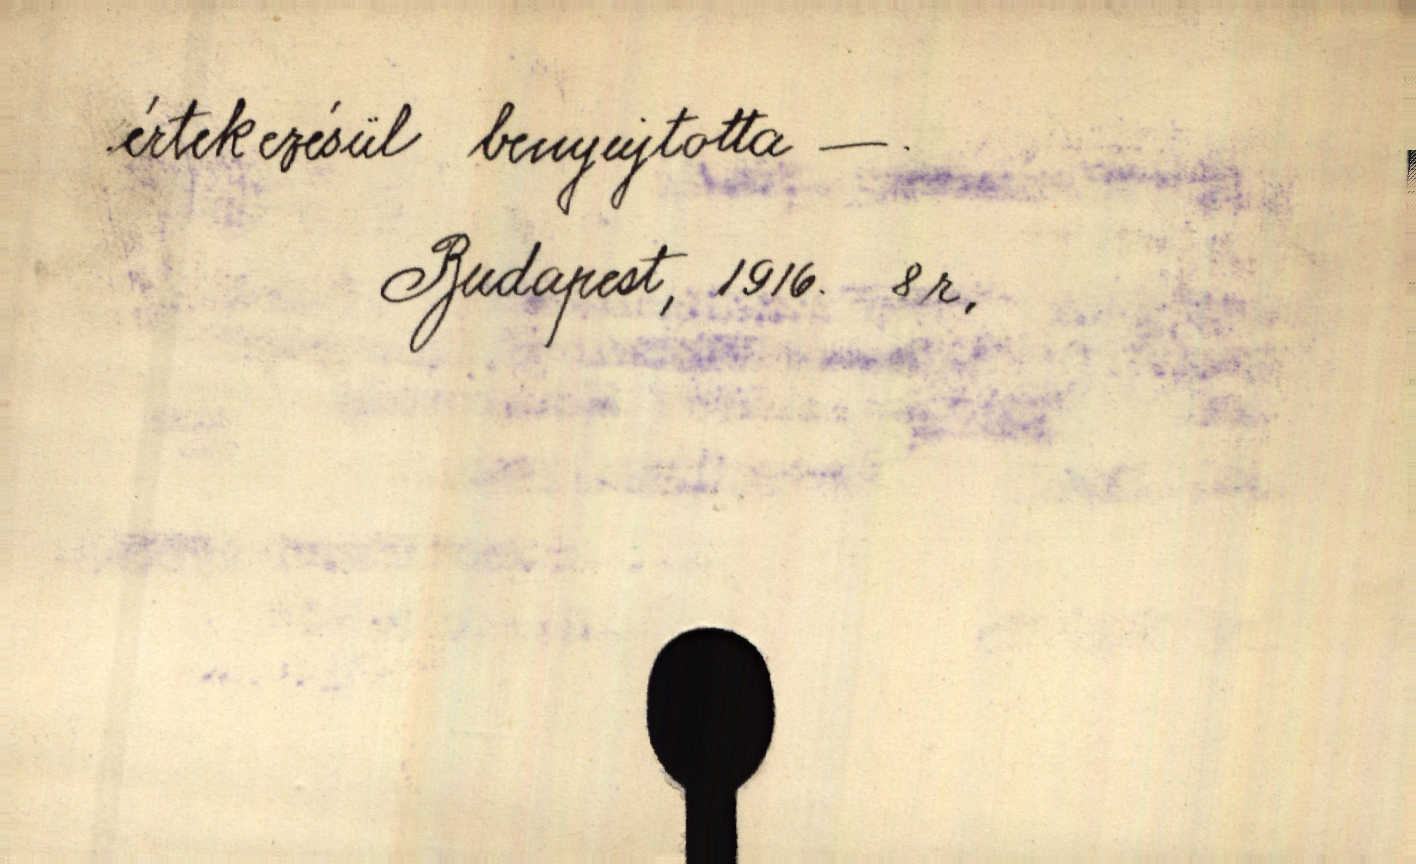 értekezésül benyujtotta —.
Budapest, 1916. 8r,